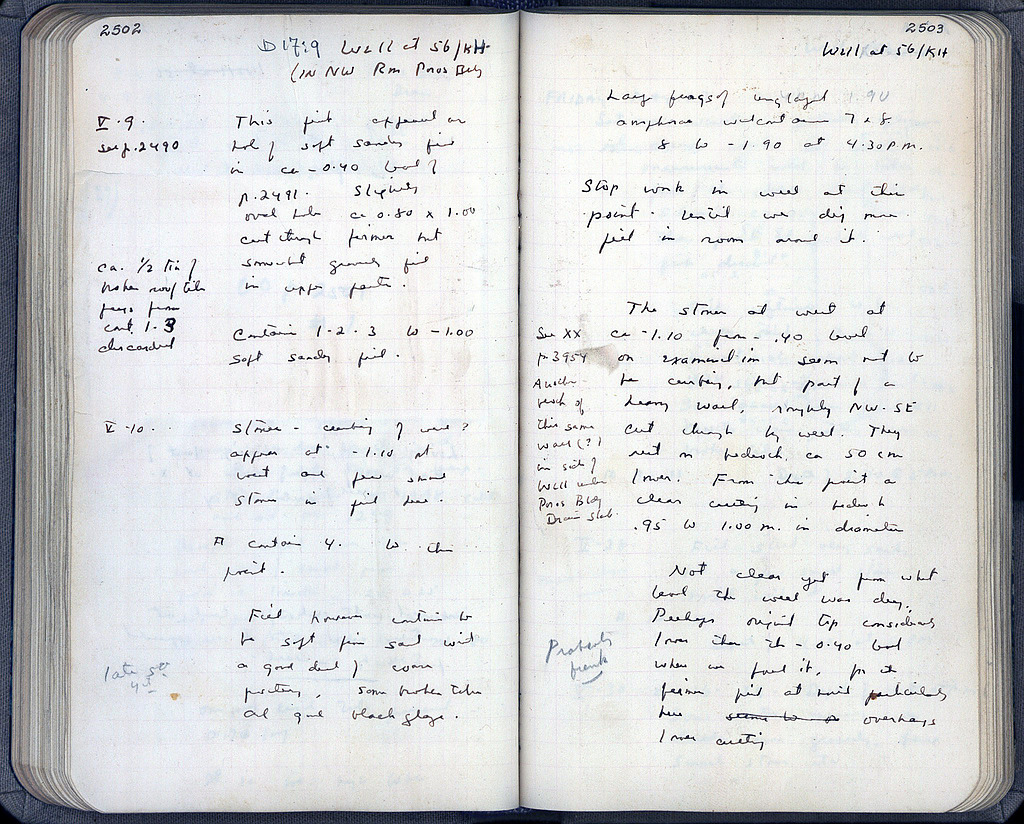 2502
D 17:9 Well at 56/KH
(IN NW Rm Poros Bldg
V·9·
see p. 2490
This pit appeared as
hole of soft sandy fill
in ca -0.40 level of
p. 2491. Slightly
oval hole ca 0.80 x 1.00
cut through firmer but
somewhat gravelly fill
in upper parts.
ca. 1/2 tin of
broken roof tile
frags from
cont. 1-3
discarded
Contain 1-2-3 to -1.00
soft sandy fill.
V-10.
Stones - curbing of well?
appear at -1.10 at
west and few small
stones in fill here.
contain 4. to this
point.
Fill however contin to
be soft fine sand with
a good deal of coarse
pottery, some broken tiles
and good black glaze.
late 5th
4th
2503
Well at 56/KH
Large frags of unglazed
amphorae with contain 7 + 8.
8 to -1.90 at 4.30 P.M.
Stop work in well at this
point. Until we dig more
fill in room around it.
The stones at west at
ca -1.10 from -.40 level
on examination seem not to
be curbing, but part of a
heavy wall, roughly NW-SE
cut through by well. They
rest on bedrock ca 50 cm
lower. From this point a
clear cutting in bedrock
.95 to 1.00 m. in diameter
See XX
p. 3954
Another
stretch of
this same
wall (?)
in side of
well under
Poros Bldg
Drain Slab.
Not clear yet from what
level the well was dug.
Perhaps original top considerably
lower than the -0.40 level
when we found it, for the
firmer fill at sides particularly
here seems to overhangs
lower cutting